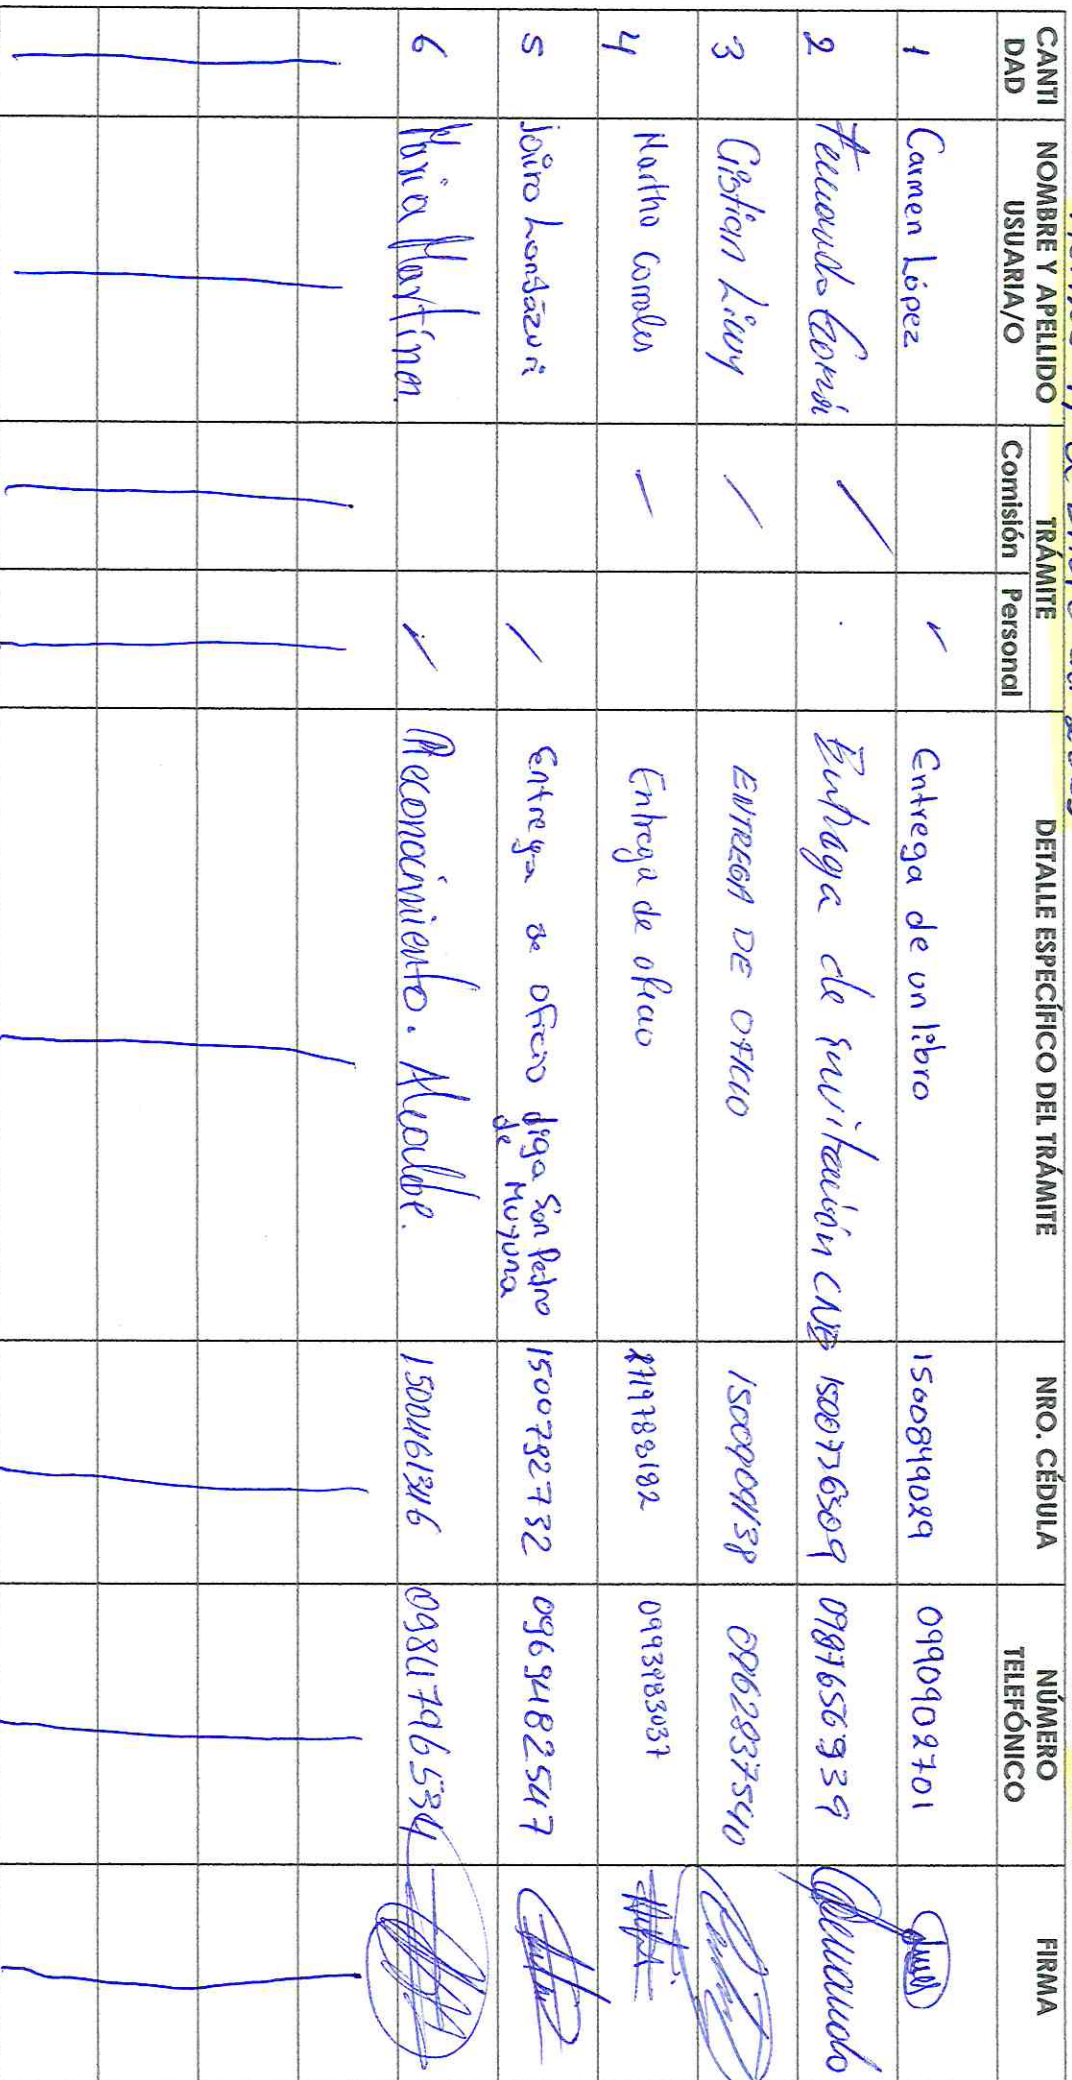 CANTI DAD | NOMBRE Y APELLIDO USUARIA/O | TRÁMITE Comisión | Personal | DETALLE ESPECÍFICO DEL TRÁMITE | NRO. CÉDULA | NÚMERO TELEFÓNICO | FIRMA
1 Carmen López Entrega de un libro 1500849029 0990902701
2 de invitación CNE 0987656939
3 ENTREGA DE OFICIO 0962837540
4 Martha Corrales Entrega de oficio 0993983037
5 Jairo Londázuri Entrega de oficio liga San Pedro de Muyuna 1500782732 0969482547
6 Maria Reconocimiento. Alcalde. 1500461346 0984796534